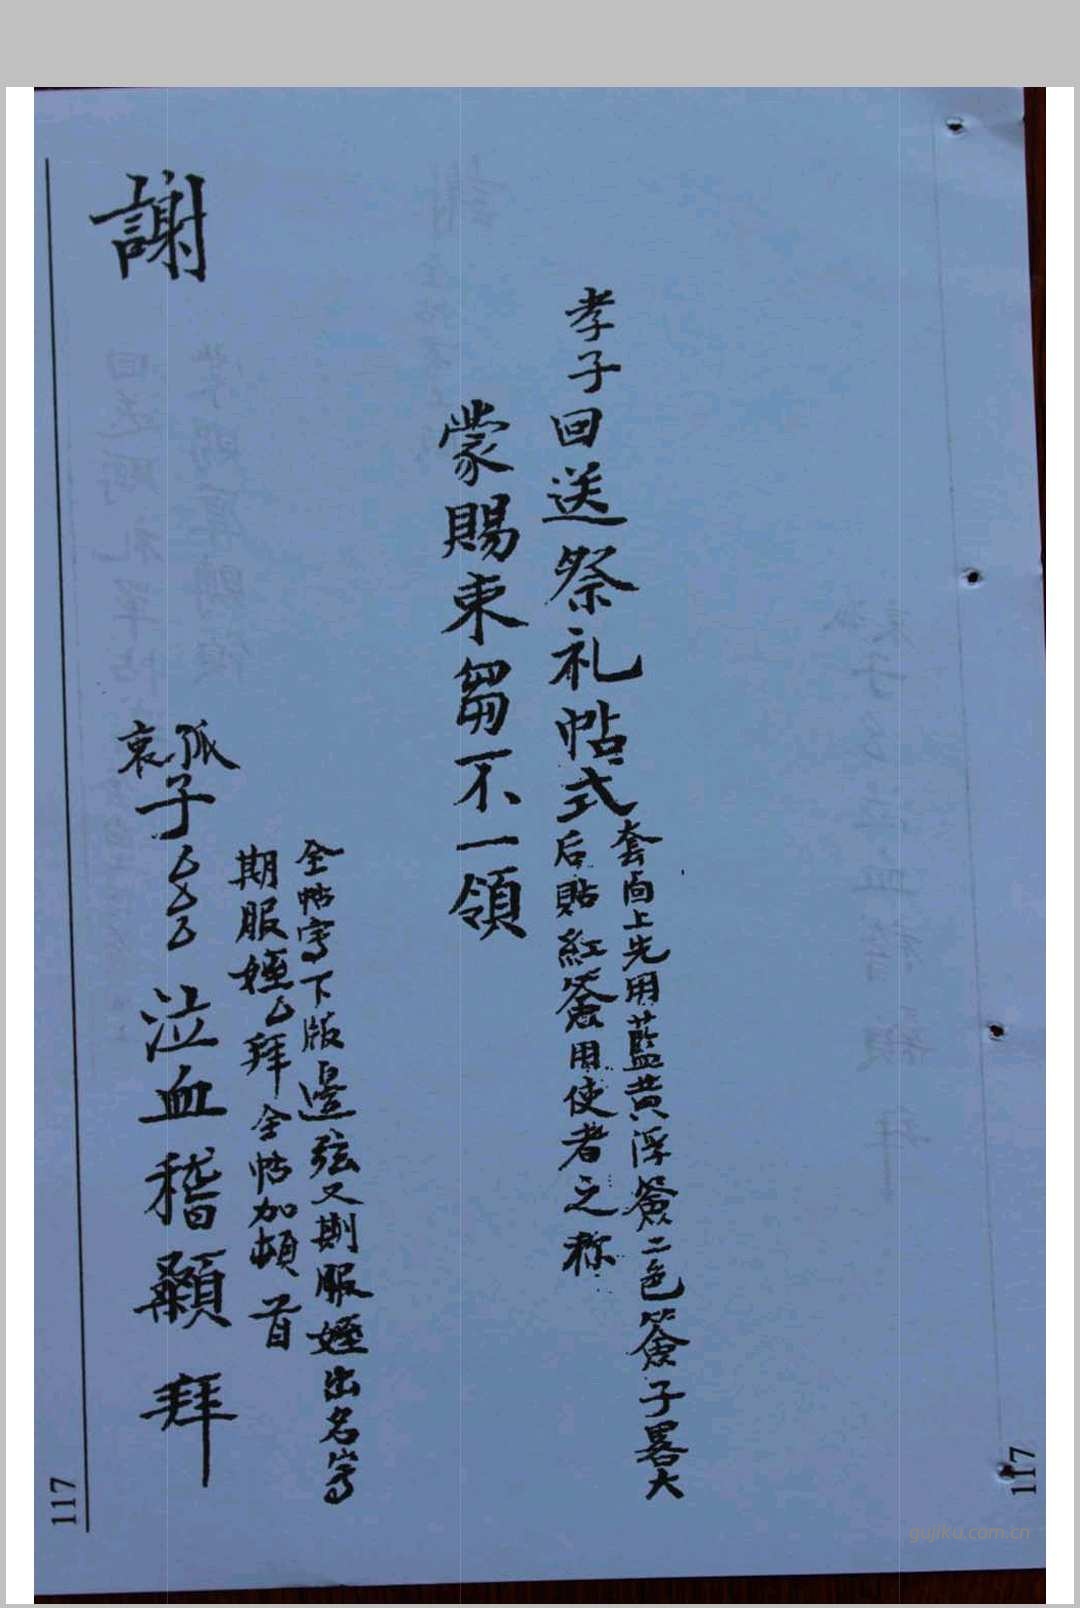 孝子回送祭礼帖式
套面上先用藍黄浮簽二色簽子畧大
后貼紅簽用使者之称
蒙賜束芻不一領
全帖寫下版邊弦又期服姪出名寫
期服姪厶拜全帖加頓首
孤
哀
子厶厶厶泣血稽顙拜
謝
117
117
gujiku.com.cn